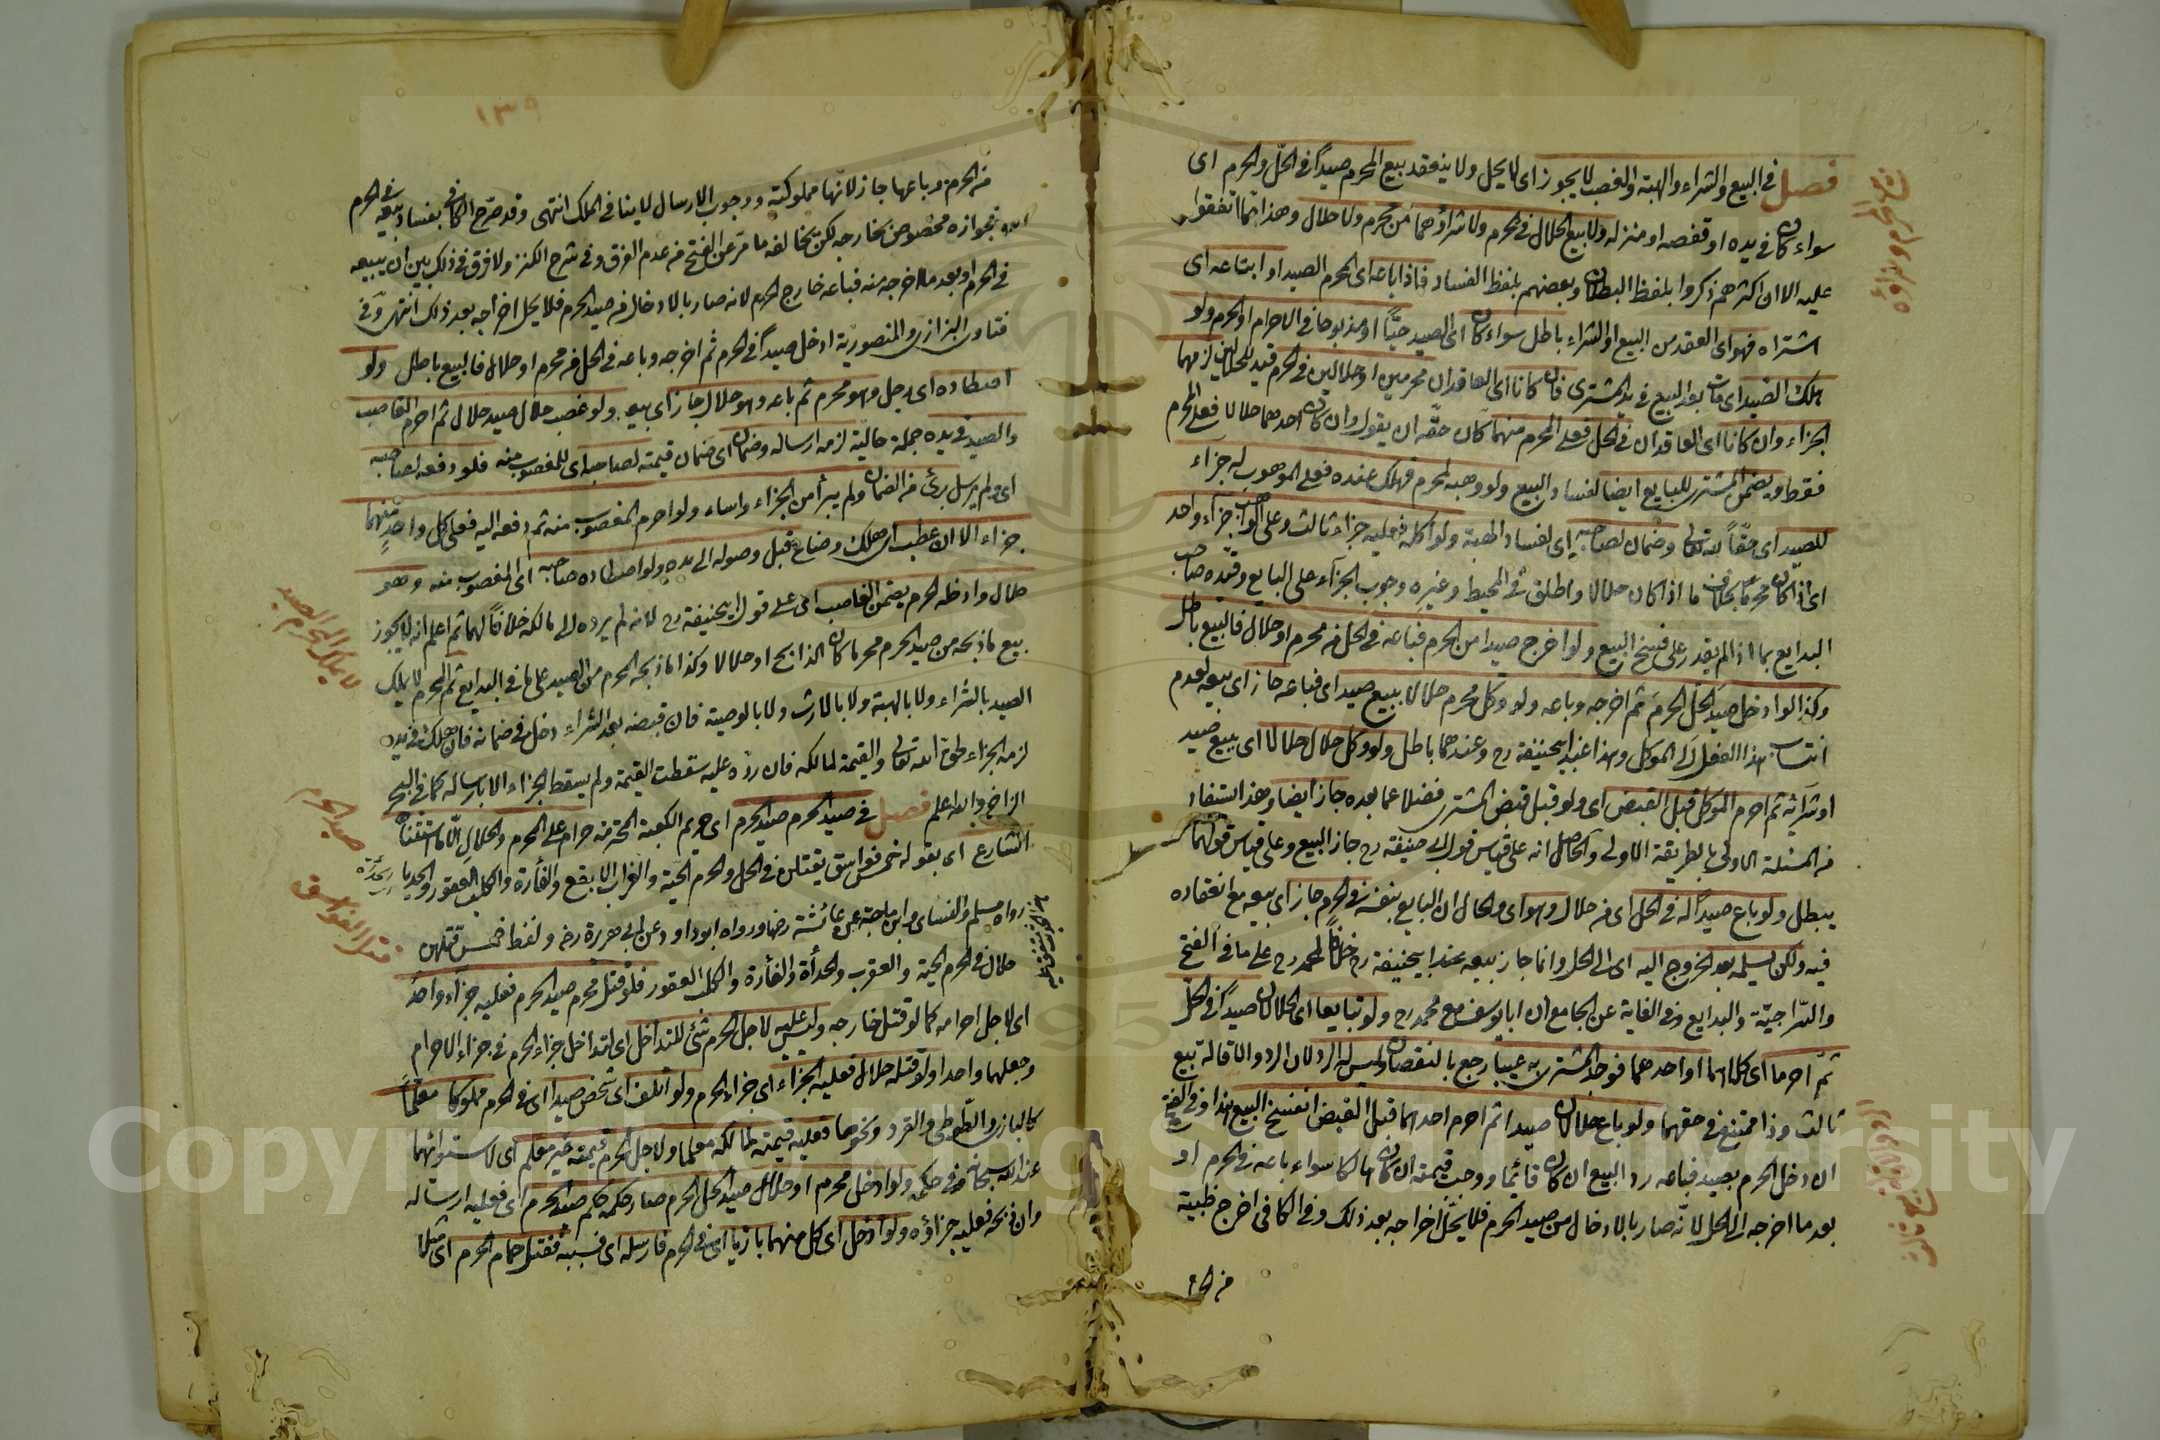 فصل في البيع والشراء والهبة والغصب لا يجوز اى لا يحل ولا ينعقد بيع المحرم صيدا في الحل والحرم اى
سواء كان في يده او قفصه او منزله ولا بيع الحلال في محرم ولا شراؤهما من محرم ولا حلال وهذا مما اتفقوا
عليه الا ان اكثرهم ذكروا بلفظ البطلان وبعضهم بلفظ الفساد فاذا باع اى المحرم الصيد او ابتاعه اى
اشتراه فهو اى العقد من البيع او الشراء باطل سواء كان اى الصيد حيًّا او مذبوحا في الاحرام او الحرم ولو
هلك الصيد اى مات بعد البيع في يد المشترى فان كانا اى العاقدان محرمين او حلالين في الحرم قيد للحلالين لزمهما
الجزاء وان كانا اى العاقدان في الحل فعلى المحرم منهما كان حقه ان يقول وان كان احدهما حلالا فعلى المحرم
فقط ويضمن المشترى للبايع ايضا لفساد البيع ولو وهبه لمحرم فهلك عنده فعلى الموهوب له جزاء
للصيد اى حقًّا لله تعالى وضمان لصاحبه اى لفساد الهبة ولو اكله فعليه جزاء ثالث وعلى الواهب جزاء واحد
اى اذا كان محرما بخلاف ما اذا كان حلالا واطلق في المحيط وغيره وجوب الجزاء على البايع وقيده صاحب
البدايع بما اذا لم يقدر على فسخ البيع ولو اخرج صيدا من الحرم فباعه في الحل من محرم او حلال فالبيع باطل
وكذا لو ادخل صيد الحل الحرم ثم اخرجه وباعه ولو وكل محرم حلالا ببيع صيد اى فباعه جاز اى بيعه لعدم
انتساب هذا الفعل الى الموكل وهذا عند ابى حنيفة رح وعندهما باطل ولو وكل حلال حلالا اى ببيع صيد
او شرائه ثم احرم الموكل قبل القبض اى ولو قبل قبض المشترى فضلا عما بعده جاز ايضا وهذا استفاد
من المسئلة الاولى بالطريقة الاولى والحاصل انه على قياس قول ابى حنيفة رح جاز البيع وعلى قياس قولهما
يبطل ولو باع صيدا له في الحل اى من حلال وهو اى والحال ان البايع بنفسه في الحرم جاز اى بيعه مع انعقاده
فيه ولكن يسلمه بعد الخروج اليه اى الى الحل وانما جاز بيعه عند ابى حنيفة رح خلافا لمحمد رح على ما في الفتح
والسراجية والبدايع وفي الغاية عن الجامع ان ابا يوسف مع محمد رح ولو تبايعا اى الحلالان صيدا في الحل
ثم احرما اى كلاهما او احدهما فوجد المشترى به عيبا رجع بالنقصان وليس له الرد لان الرد والاقالة بيع
ثالث وذا ممتنع في حقهما ولو باع حلالان صيدا ثم احرم احدهما قبل القبض انفسخ البيع هذا وفي الفتح
ان دخل الحرم بصيد فباعه رد البيع ان كان قائما ووجب قيمته ان كان هالكا سواء باعه في الحرم او
بعد ما اخرجه الى الحل لانه صار بالادخال من صيد الحرم فلا يحل اخراجه بعد ذلك وفي الكافي اخرج ظبية
من الحر
١٣٩
من الحرم وباعها جاز لانها مملوكته ووجوب الارسال لا ينافي الملك انتهى وقد صرح الكافي بفساد بيعه في الحرم
وبجوازه مخصوص بخارجه لكن يخالفه ما مر عن الفتح من عدم الفرق وفي شرح الكنز ولا فرق في ذلك بين ان يبيعه
في الحرم او بعد ما اخرجه منه فباعه خارج الحرم لانه صار بالادخال من صيد الحرم فلا يحل اخراجه بعد ذلك انتهى وفي
فتاوى البزازى والمنصورية ادخل صيدا في الحرم ثم اخرجه وباعه في الحل من محرم او حلال فالبيع باطل ولو
اصطاده اى رجل وهو محرم ثم باعه وهو حلال جاز اى بيعه ولو غصب حلال صيد حلال ثم احرم الغاصب
والصيد في يده جملة حالية لزمه ارساله وضمان اى ضمان قيمته لصاحبه اى للمغصوب منه فلو دفعه لصاحبه
اى ولم يرسل برئ من الضمان ولم يبرأ من الجزاء واساء ولو احرم المغصوب منه ثم دفعه اليه فعلى كل واحد منهما
جزاء الا ان عطب اى هلك وضاع قبل وصوله الى يده ولو اصطاده صاحبه اى المغصوب منه وهو
حلال وادخله الحرم يضمن الغاصب اى على قول ابى حنيفة رح لانه لم يرده الى مالكه خلافا لهما ثم اعلم انه لا يجوز
بيع ما ذبحه من صيد الحرم محرما كان الذابح او حلالا وكذا ما ذبحه المحرم من الصيد على ما في البدايع ثم المحرم لا يملك
الصيد بالشراء ولا بالهبة ولا بالارث ولا بالوصية فان قبضه بعد الشراء دخل في ضمانه فان هلك في يده
لزمه الجزاء حق الله تعالى والقيمة لمالكه فان رده عليه سقطت القيمة ولم يسقط الجزاء الا بارساله كما في البحر
الزاخر والله اعلم فصل في صيد الحرم صيد الحرم اى حريم الكعبة المحترمة حرام على المحرم والحلال الا ما استثناه
الشارع اى بقوله خمس فواسق يقتلن في الحل والحرم الحية والغراب الابقع والفأرة والكلب العقور والحديا
رواه مسلم والنسائى وابن ماجة عن عائشة رضها ورواه ابو داود عن ابى هريرة رض ولفظ خمس قتلهن
حلال في الحرم الحية والعقرب والحدأة والفأرة والكلب العقور فلو قتل محرم صيد الحرم فعليه جزاء واحد
اى لاجل احرامه كما لو قتل خارجه وليس عليه لاجل الحرم شئ للتداخل اى لتداخل جزاء الحرم في جزاء الاحرام
وجعلهما واحدا ولو قتله حلال فعليه الجزاء اى جزاء الحرم ولو اتلف اى شخص صيدا اى في الحرم مملوكا معلما
كالبازى والطوطى والقرد ونحوها فعليه قيمته لمالكه معلما ولاجل الحرم قيمته غير معلم اى لاستوائهما
عند الله سبحانه في حكمه ولو ادخل محرم او حلال صيد الحل الحرم صار حكمه حكم صيد الحرم اى فعليه ارساله
وان ذبحه فعليه جزاؤه ولو ادخل اى كل منهما بازيا اى في الحرم فارسله اى فسيبه فقتل حمام الحرم اى مثلا
لا يملك المحرم الصيد
صيد الحرم
قتل الفواسق